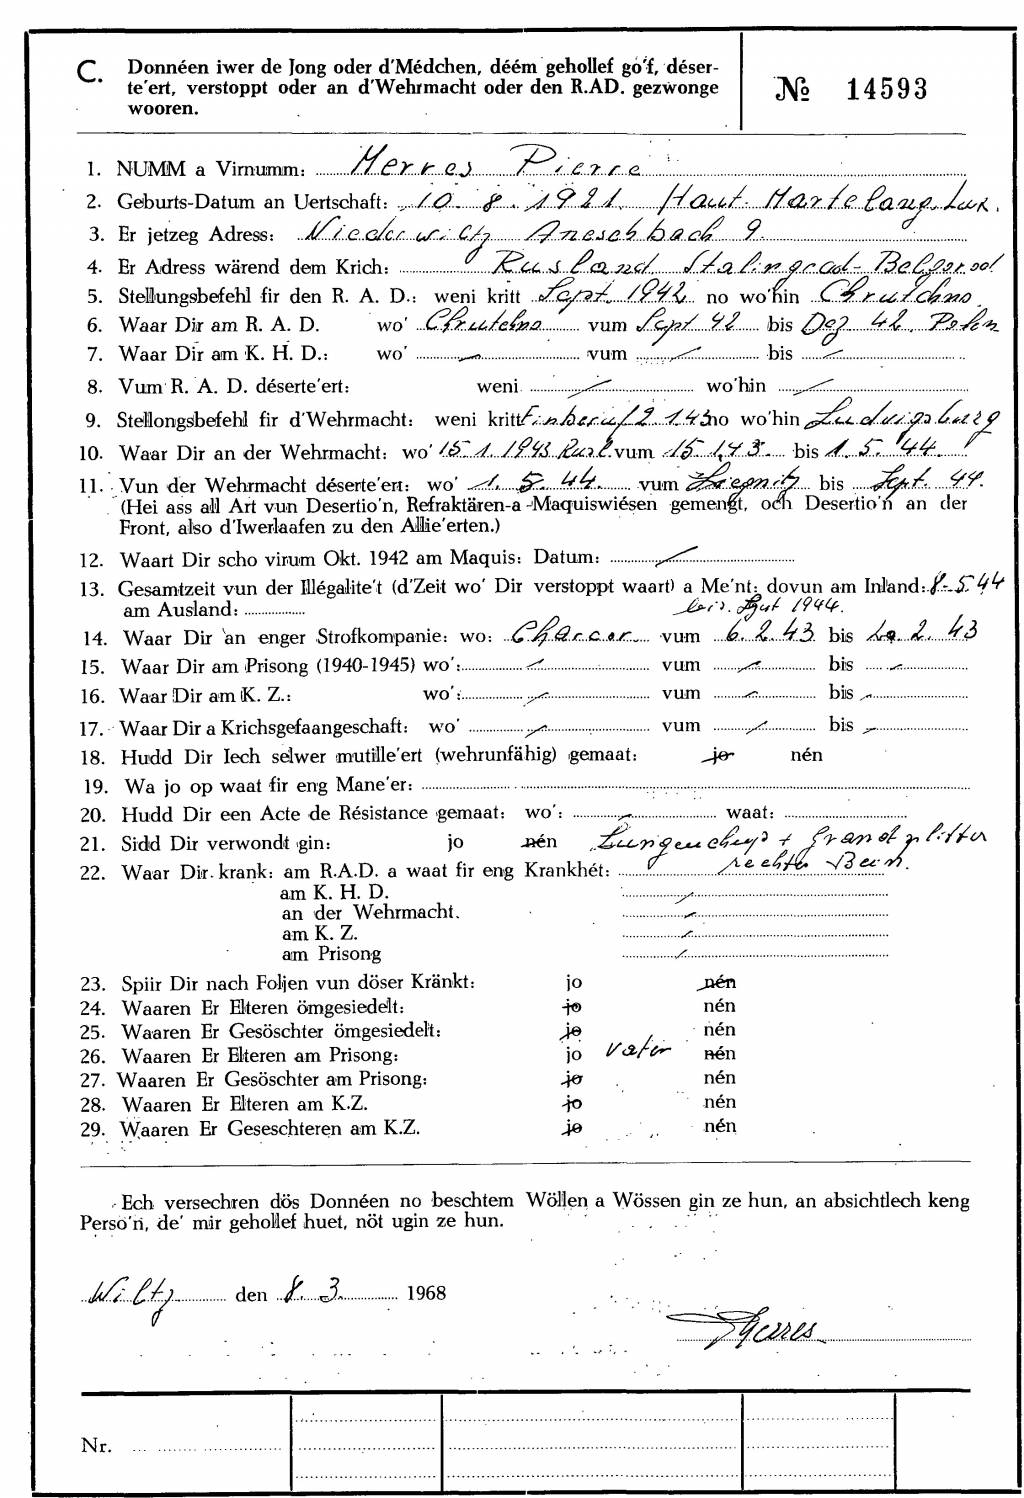 C. Donnéen iwer de Jong oder d'Médchen, déém gehollef go'f, déser-
te'ert, verstoppt oder an d'Wehrmacht oder den R.AD. gezwonge
wooren.
№ 14593
1. NUMM a Virnumm: Merres Pierre
2. Geburts-Datum an Uertschaft: 10. 8. 1921 Haut-Martelang. Lux.
3. Er jetzeg Adress: Niederwiltz Aneschbach 9.
4. Er Adress wärend dem Krich: Rusland Stalingrad-Belgorod
5. Stellungsbefehl fir den R. A. D.: weni kritt Sept. 1942 no wo'hin
6. Waar Dir am R. A. D. wo' vum Sept 42 bis Dez 42. Polen
7. Waar Dir am K. H. D.: wo' / vum / bis /
8. Vum R. A. D. déserte'ert: weni / wo'hin /
9. Stellongsbefehl fir d'Wehrmacht: weni kritt Einberuf 2.1.43 no wo'hin Ludwigsburg
10. Waar Dir an der Wehrmacht: wo' 15. 1. 1943 Rusl. vum 15.1.43. bis 1. 5. 44.
11. Vun der Wehrmacht déserte'ert: wo' 1. 5. 44. vum Liegnitz bis Sept. 44.
(Hei ass all Art vun Desertio'n, Refraktären-a -Maquiswiésen gemengt, och Desertio'n an der
Front, also d'Iwerlaafen zu den Allie'erten.)
12. Waart Dir scho virum Okt. 1942 am Maquis: Datum: /
13. Gesamtzeit vun der Illégalite't (d'Zeit wo' Dir verstoppt waart) a Me'nt: dovun am Inland: 8-5.44
am Ausland: bis Sept 1944.
14. Waar Dir an enger Strofkompanie: wo: Charcor vum 6. 2. 43 bis 2. 43
15. Waar Dir am Prisong (1940-1945) wo': / vum / bis /
16. Waar Dir am K. Z.: wo': / vum / bis /
17. Waar Dir a Krichsgefaangeschaft: wo' / vum / bis /
18. Hudd Dir Iech selwer mutille'ert (wehrunfähig) gemaat: jo nén
19. Wa jo op waat fir eng Mane'er:
20. Hudd Dir een Acte de Résistance gemaat: wo': / waat:
21. Sidd Dir verwondt gin: jo nén Lungenschuss + Granatsplitter
22. Waar Dir krank: am R.A.D. a waat fir eng Krankhét: rechter Bein.
am K. H. D. /
an der Wehrmacht. /
am K. Z. /
am Prisong /
23. Spiir Dir nach Foljen vun döser Kränkt: jo nén
24. Waaren Er Elteren ömgesiedelt: jo nén
25. Waaren Er Gesöschter ömgesiedelt: jo nén
26. Waaren Er Elteren am Prisong: jo Vater nén
27. Waaren Er Gesöschter am Prisong: jo nén
28. Waaren Er Elteren am K.Z. jo nén
29. Waaren Er Geseschteren am K.Z. jo nén
Ech versechren dös Donnéen no beschtem Wöllen a Wössen gin ze hun, an absichtlech keng
Perso'n, de' mir gehollef huet, nöt ugin ze hun.
Wiltz den 8. 3. 1968
Merres
Nr.